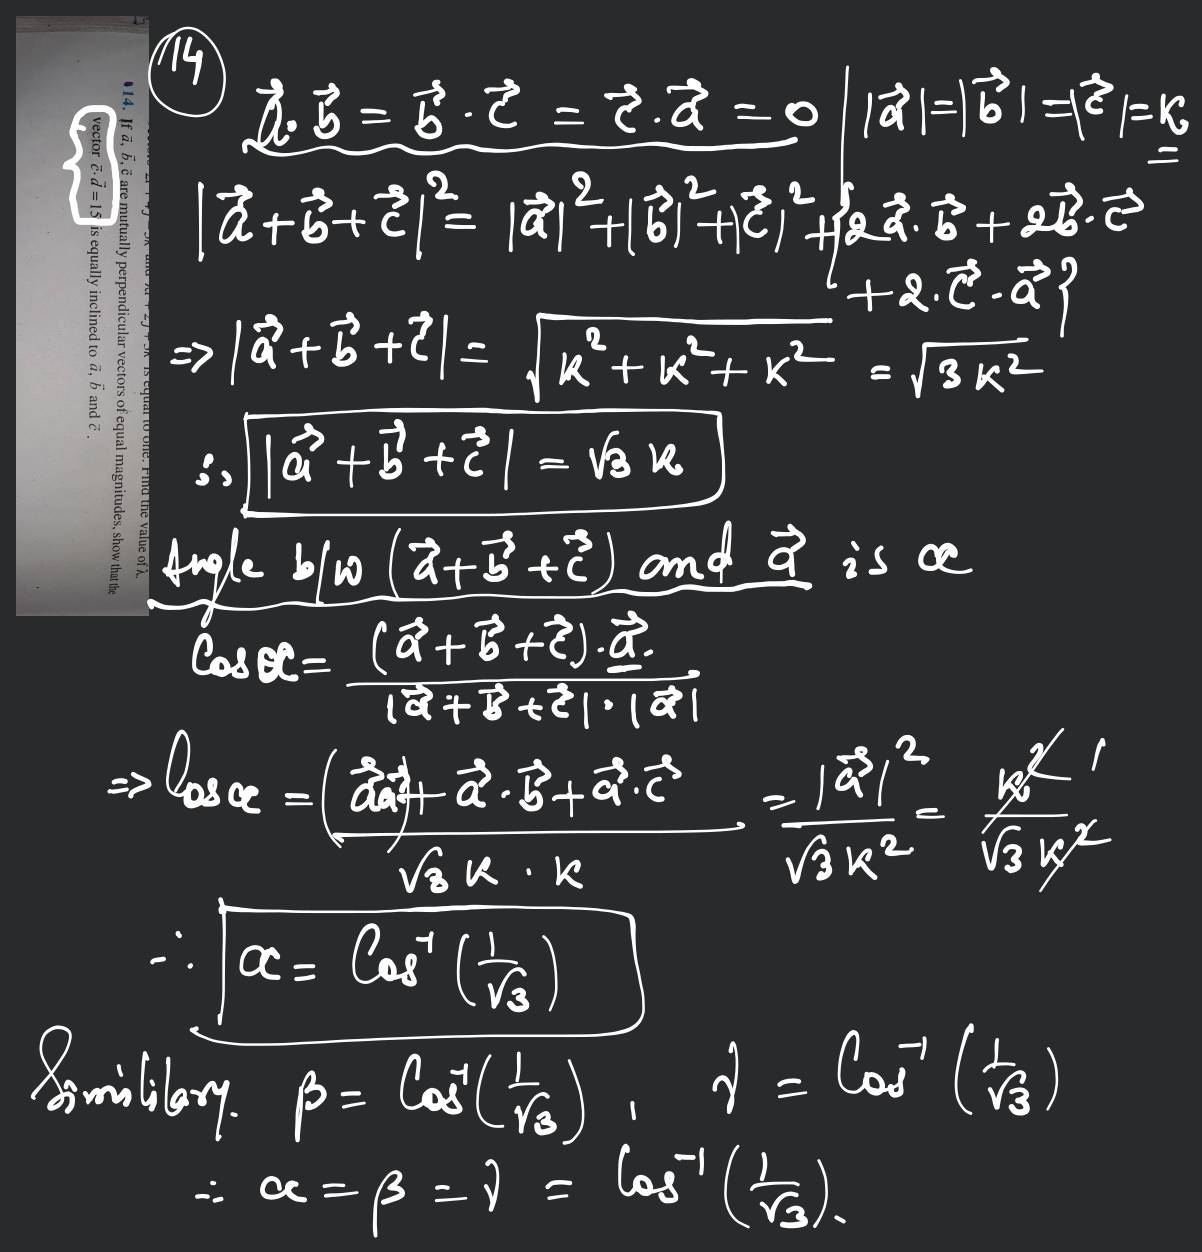 λ⃗ + 2j + 3k is equal to one. Find the value of λ.
14. If a⃗, b⃗, c⃗ are mutually perpendicular vectors of equal magnitudes, show that the
vector c⃗·d⃗ = 15 is equally inclined to a⃗, b⃗ and c⃗.
14
a⃗.b⃗ = b⃗.c⃗ = c⃗.a⃗ = 0 | |a⃗|=|b⃗|=|c⃗|=K
|a⃗+b⃗+c⃗|² = |a⃗|²+|b⃗|²+|c⃗|²+{2a⃗.b⃗+2b⃗.c⃗
+2.c⃗.a⃗}
=> |a⃗+b⃗+c⃗| = √(K²+K²+K²) = √(3K²)
∴ |a⃗+b⃗+c⃗| = √3 K
Angle b/w (a⃗+b⃗+c⃗) and a⃗ is α
Cos α = (a⃗+b⃗+c⃗).a⃗. / |a⃗+b⃗+c⃗|.|a⃗|
=> Cos α = (a⃗a⃗)+a⃗.b⃗+a⃗.c⃗ / √3 K.K = |a⃗|² / √3 K² = K² 1 / √3 K²
∴ α = Cos⁻¹(1/√3)
Simililary. β = Cos⁻¹(1/√3), γ = Cos⁻¹(1/√3)
∴ α = β = γ = Cos⁻¹(1/√3).